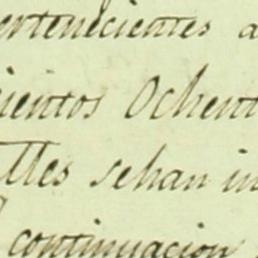 ertenecientes a
cientos Ochent
lles sehan in
continuacion